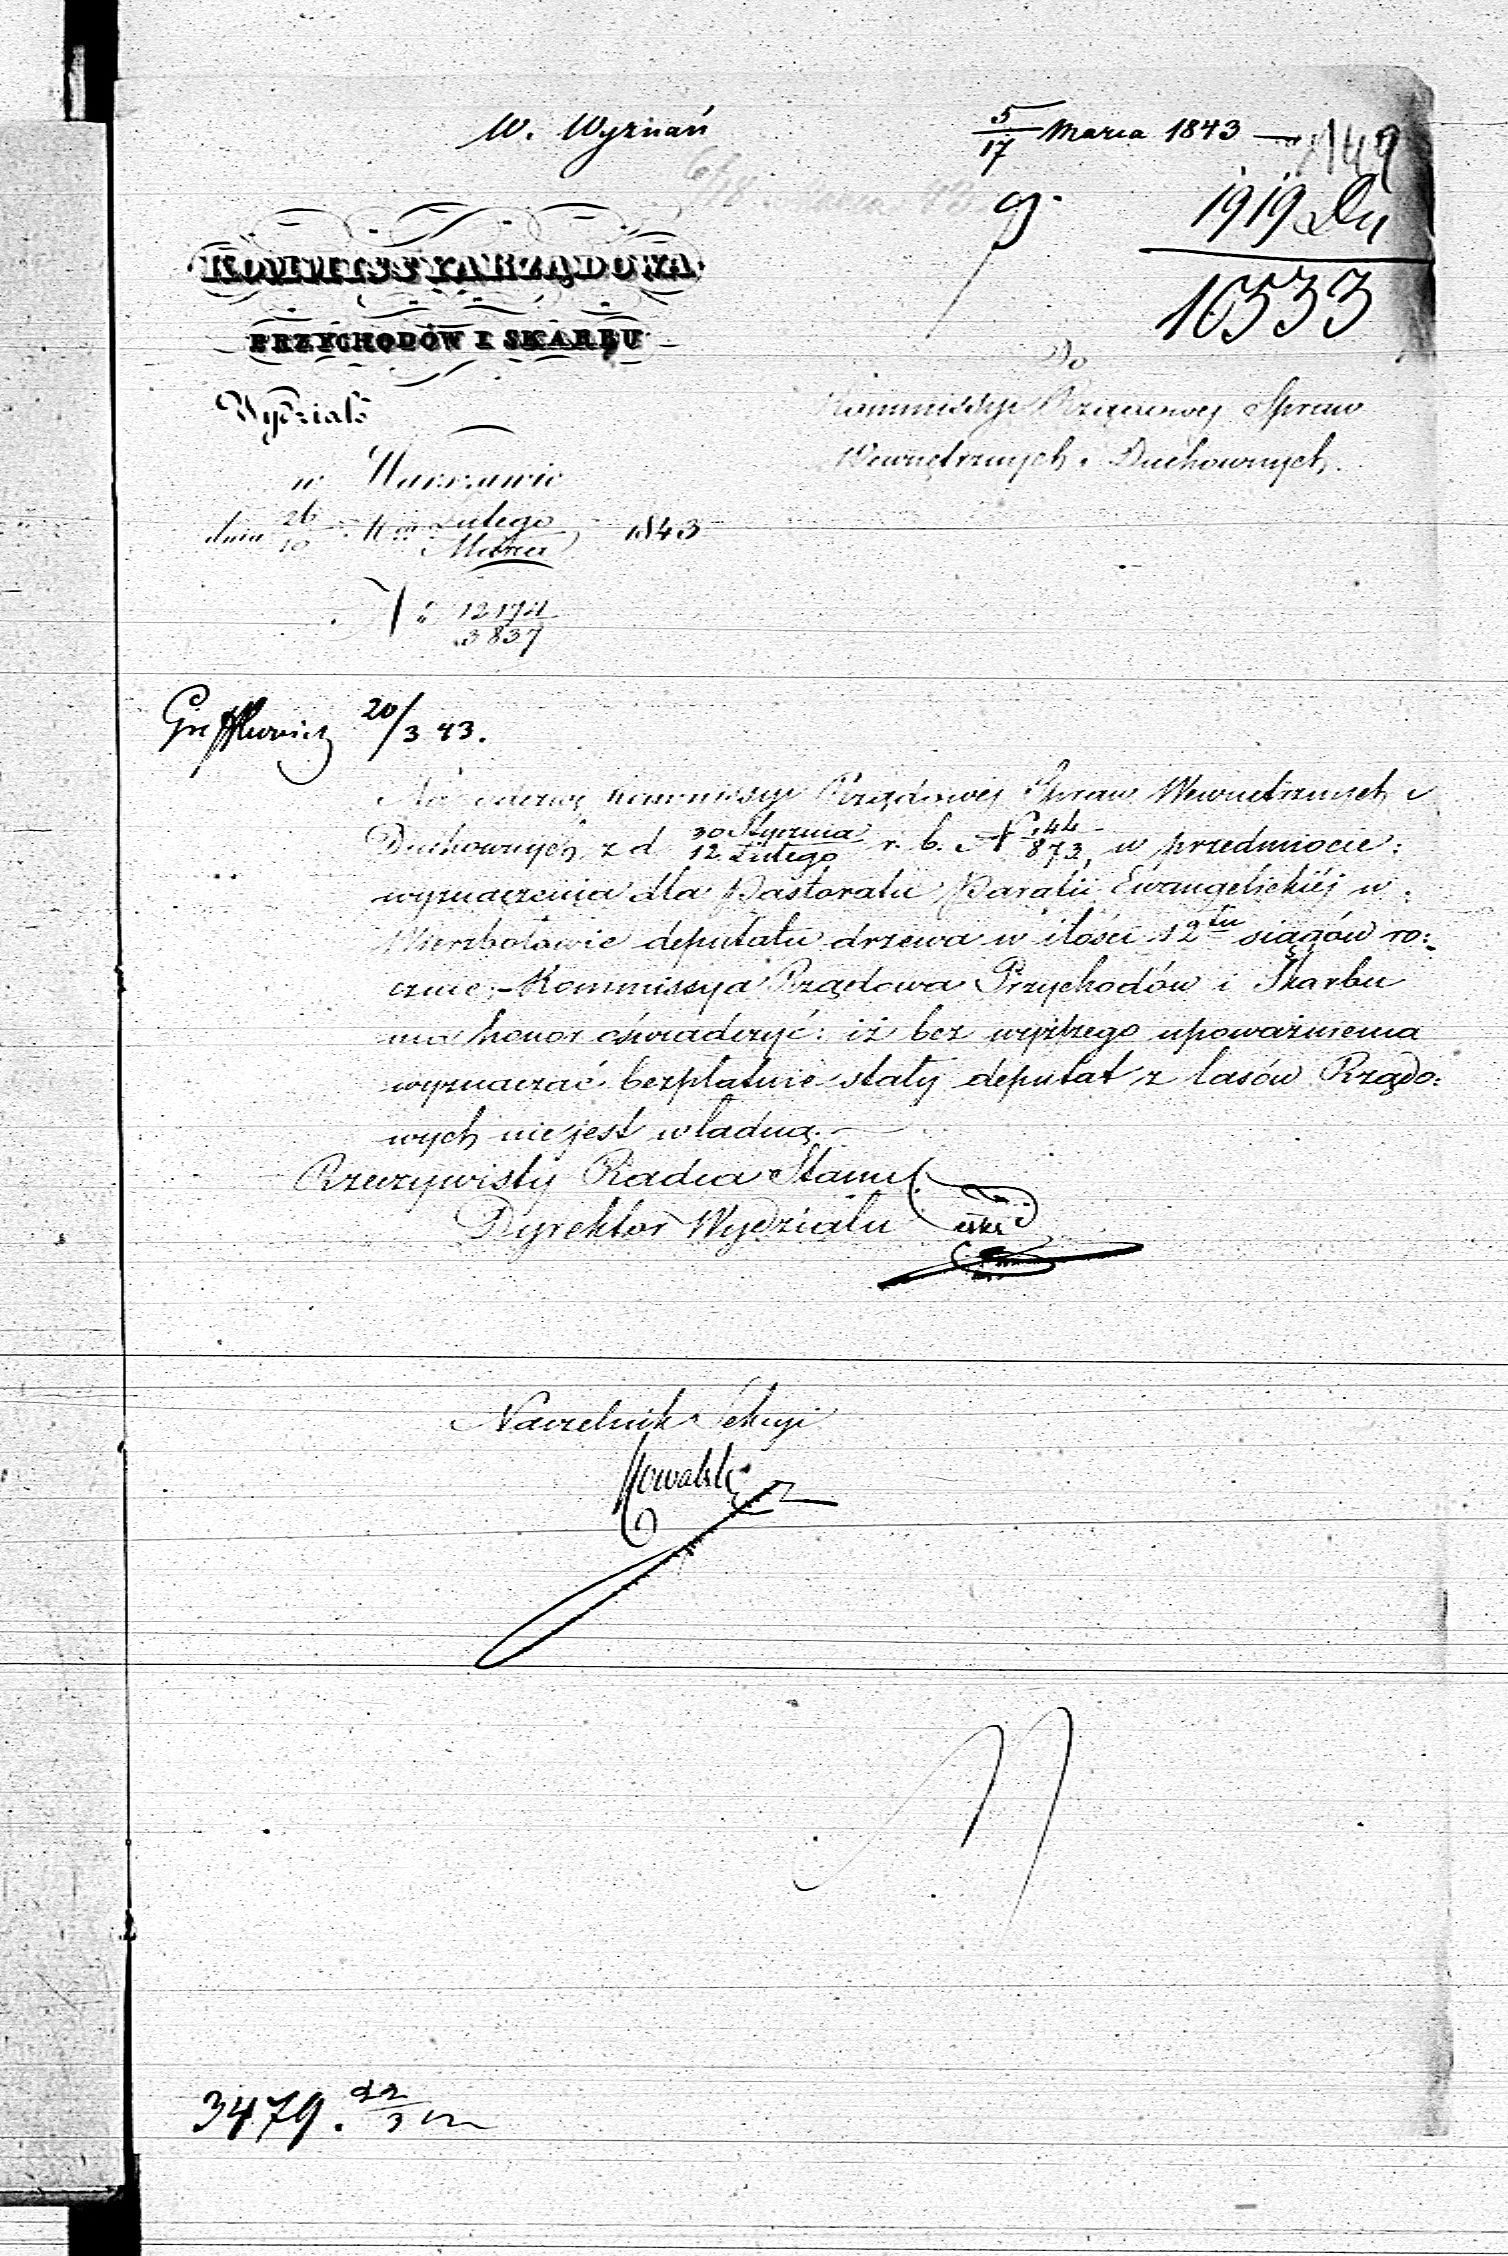 W. Wyznań
5/17 Marca 1843 149
1919 Du
10533
KOMMISSYA RZĄDOWA
PRZYCHODÓW I SKARBU
Wydział
w Warszawie
dnia 26/10 Lutego/Marca 1843
N 12194/3837
Do
Kommissyi Rządowej Spraw
Wewnętrznych i Duchownych.
20/3 43.
Na odezwę Kommissyi Rządowej Spraw Wewnętrznych i
Duchownych z d. 30 Stycznia/12 Lutego r. b. N 144/873 w przedmiocie
wyznaczenia dla Pastoratu Parafii Ewangelickiéj w
Wierzbołowie deputatu drzewa w ilości 12tu siągów ro:
cznie, – Kommissya Rządowa Przychodów i Skarbu
ma honor oświadczyć: iż bez wyższego upoważnienia
wyznaczać bezpłatnie stały deputat z lasów Rządo:
wych nie jest władną. –
Rzeczywisty Radca Stanu
Dyrektor Wydziału
Naczelnik Sekcyi
Kowalski
3479. 22/3